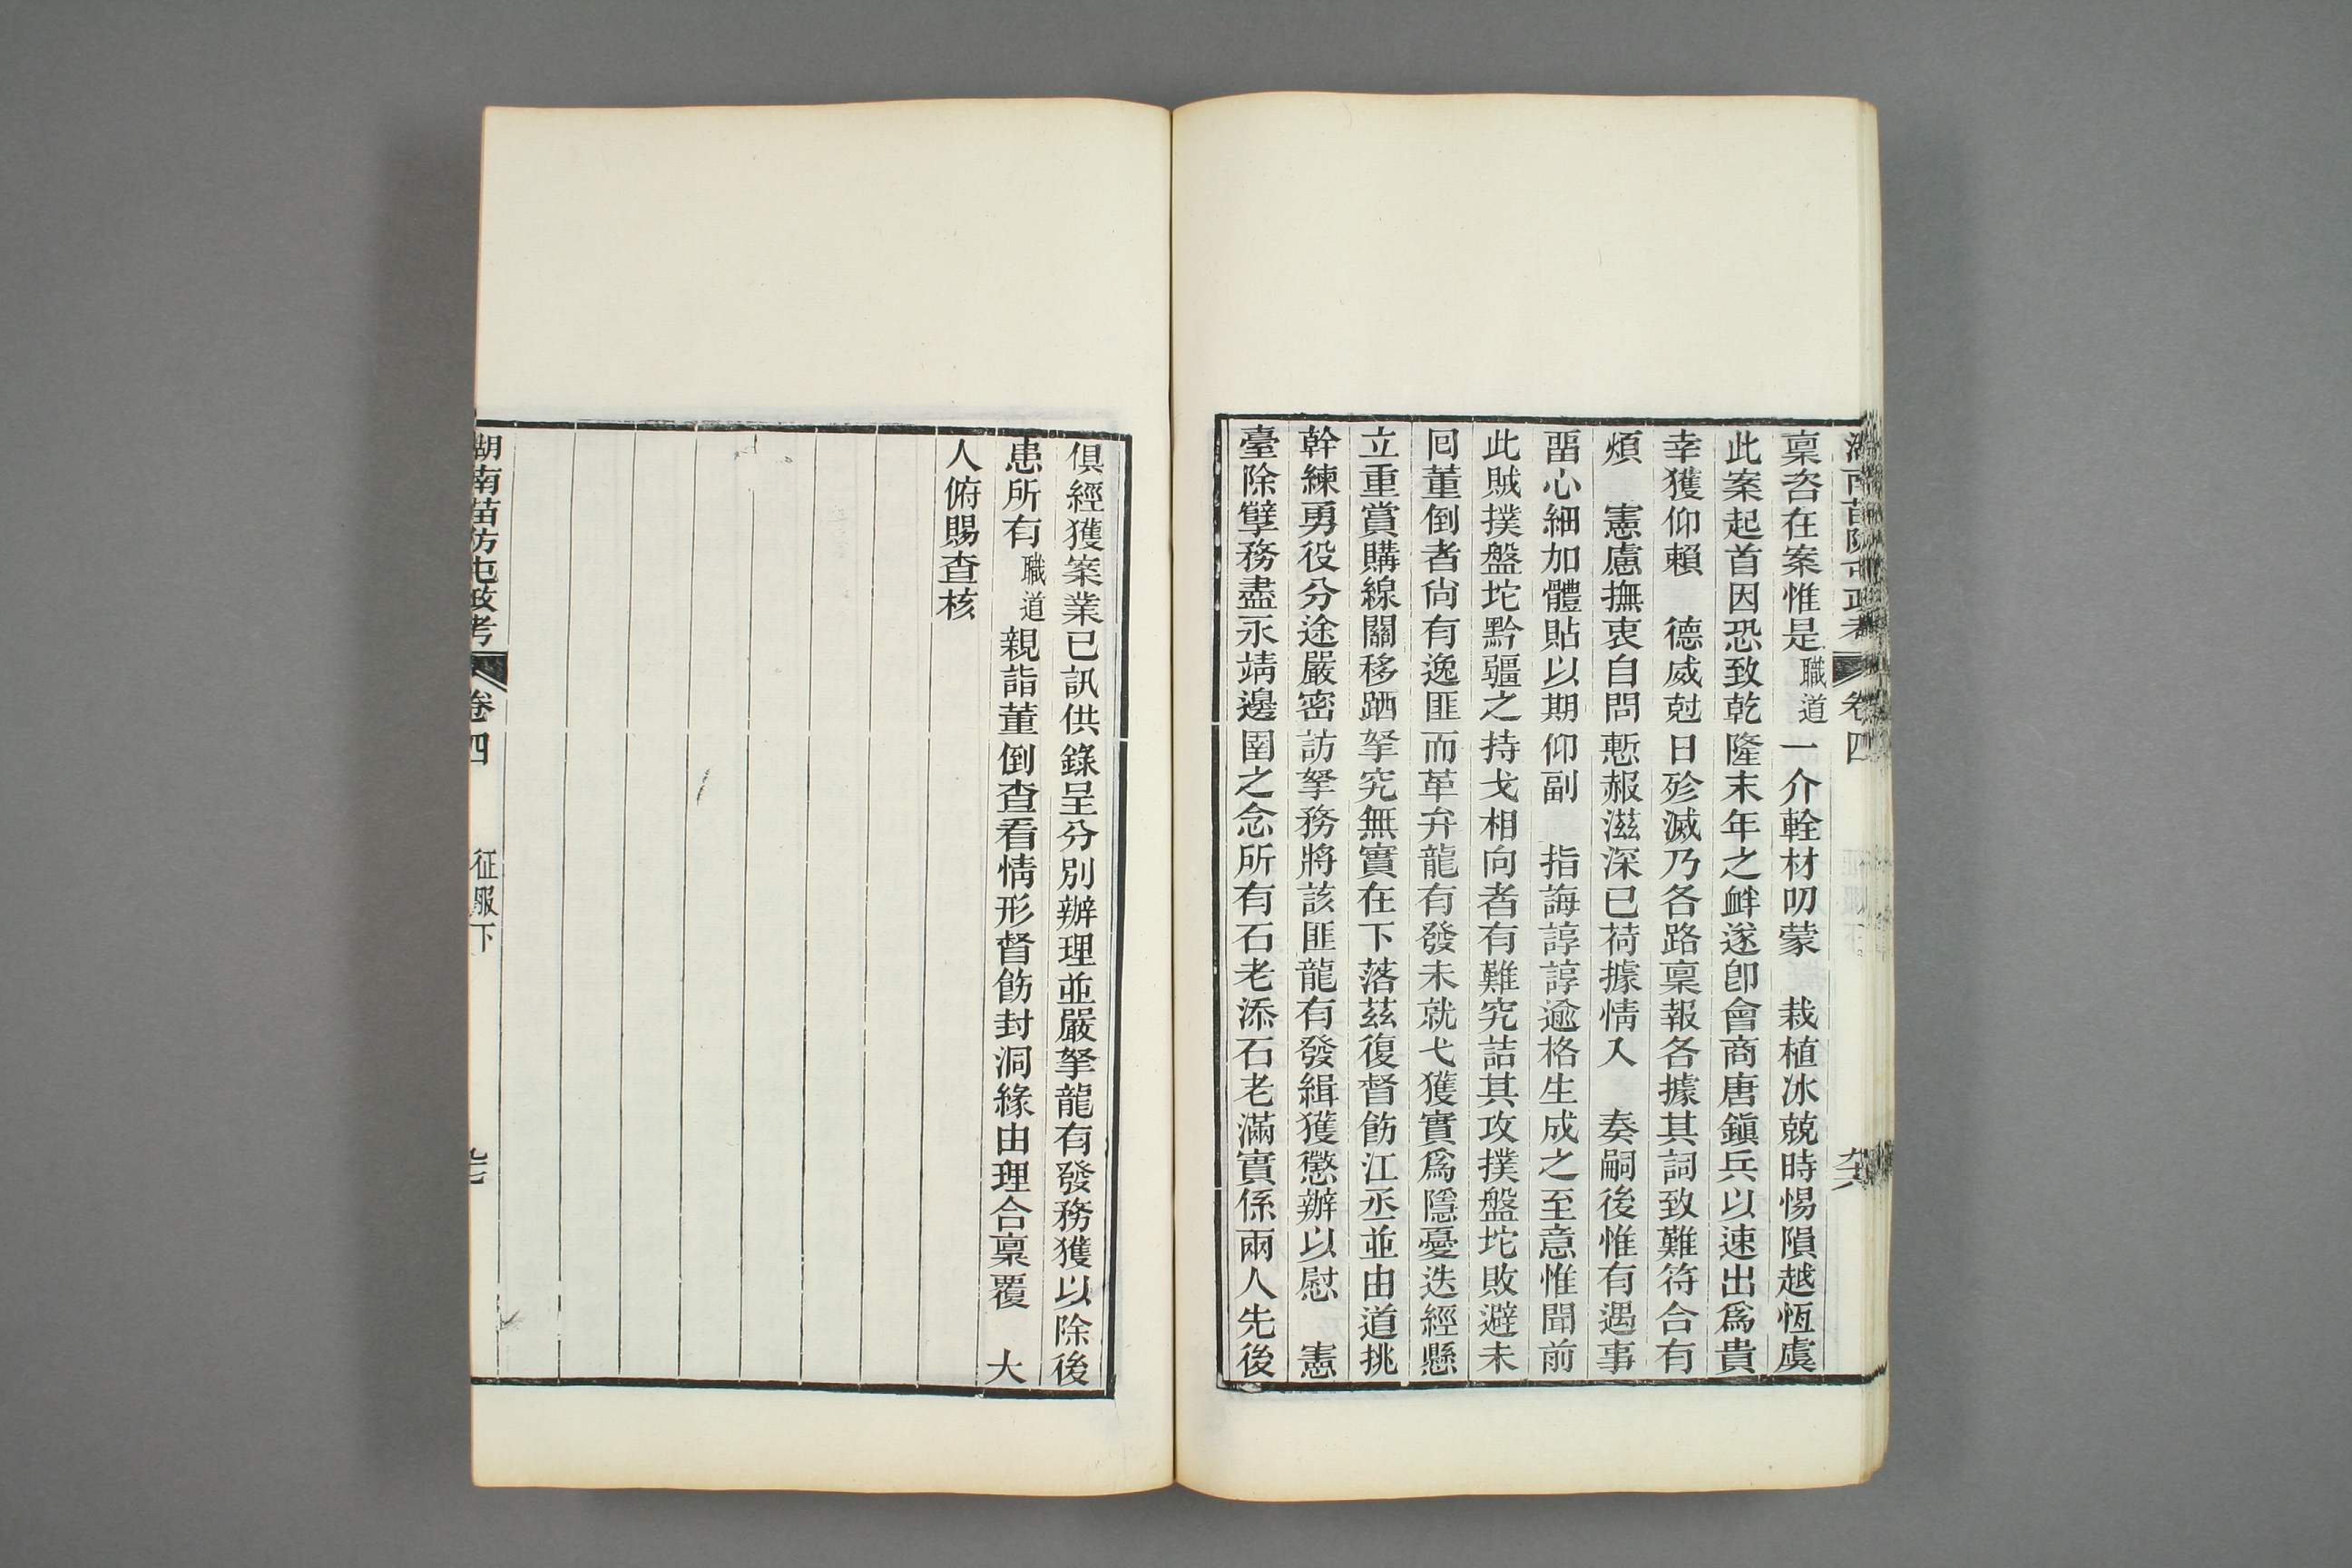 湖南苗防屯政考 卷四
稟咨在案惟是職道一介輇材叨蒙 栽植冰兢時惕隕越恆虞
此案起首因恐致乾隆末年之衅遂卽會商唐鎭兵以速出爲貴
幸獲仰賴 德威尅日殄滅乃各路稟報各據其詞致難符合有
煩 憲慮撫衷自問慙赧滋深已荷據情入 奏嗣後惟有遇事
畱心細加體貼以期仰副 指誨諄諄逾格生成之至意惟聞前
此賊撲盤坨黔疆之持戈相向者有難究詰其攻撲盤坨敗避未
囘董倒者尙有逸匪而革弁龍有發未就弋獲實爲隱憂迭經懸
立重賞購線關移跴拏究無實在下落茲復督飭江丞並由道挑
幹練勇役分途嚴密訪拏務將該匪龍有發緝獲懲辦以慰 憲
臺除孽務盡永靖邊圉之念所有石老添石老滿實係兩人先後
俱經獲案業已訊供錄呈分別辦理並嚴拏龍有發務獲以除後
患所有職道親詣董倒查看情形督飭封洞緣由理合稟覆 大
人俯賜查核
湖南苗防屯政考 卷四 征服下